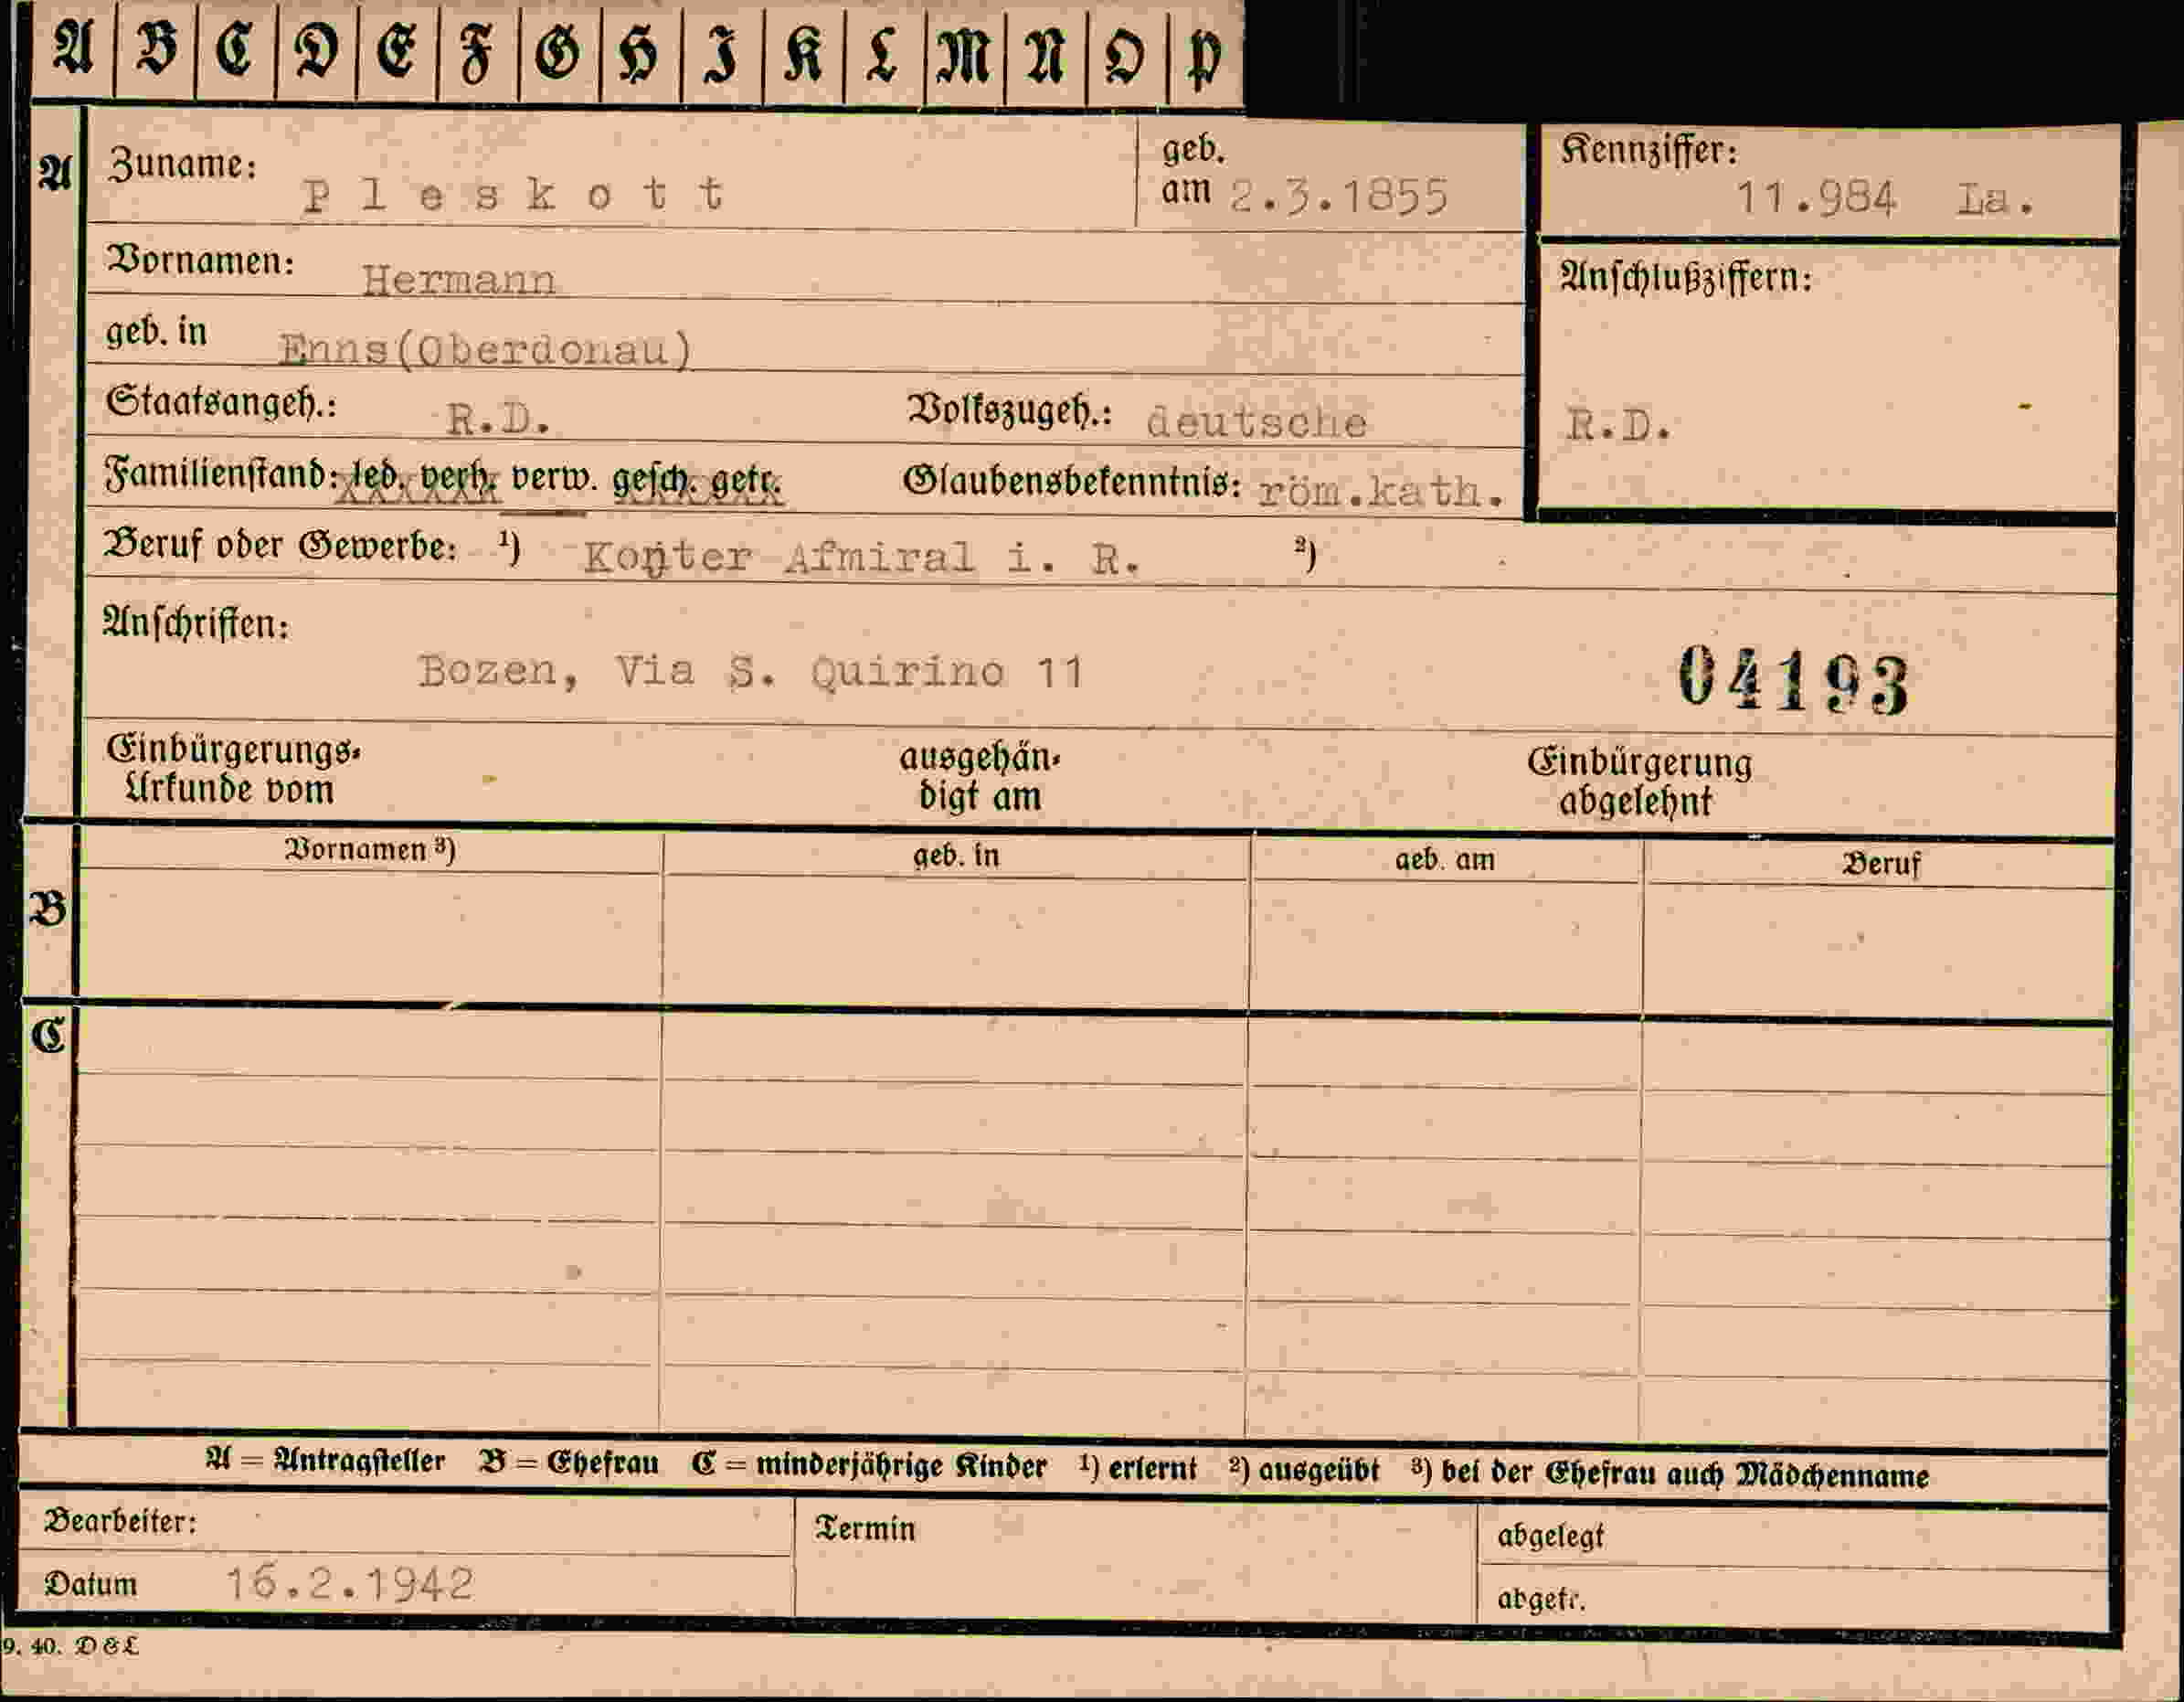 A B C D E F G H I K L M N O P
A Zuname: Pleskott geb. am 2.3.1855 Kennziffer: 11.984 La.
Vornamen: Hermann Anschlußziffern:
geb. in Enns(Oberdonau)
Staatsangeh.: R.D. Volkszugeh.: deutsche R.D.
Familienstand: led. verh. verw. gesch. getr. Glaubensbekenntnis: röm.kath.
Beruf oder Gewerbe: ¹) Konter Afmiral i. R. ²)
Anschriften:
Bozen, Via S. Quirino 11 04193
Einbürgerungs- ausgehän- Einbürgerung
Urkunde vom digt am abgelehnt
Vornamen ³) geb. in geb. am Beruf
B
C
A = Antragsteller B = Ehefrau C = minderjährige Kinder ¹) erlernt ²) ausgeübt ³) bei der Ehefrau auch Mädchenname
Bearbeiter: Termin abgelegt
Datum 16.2.1942 abgetr.
9. 40. D&L